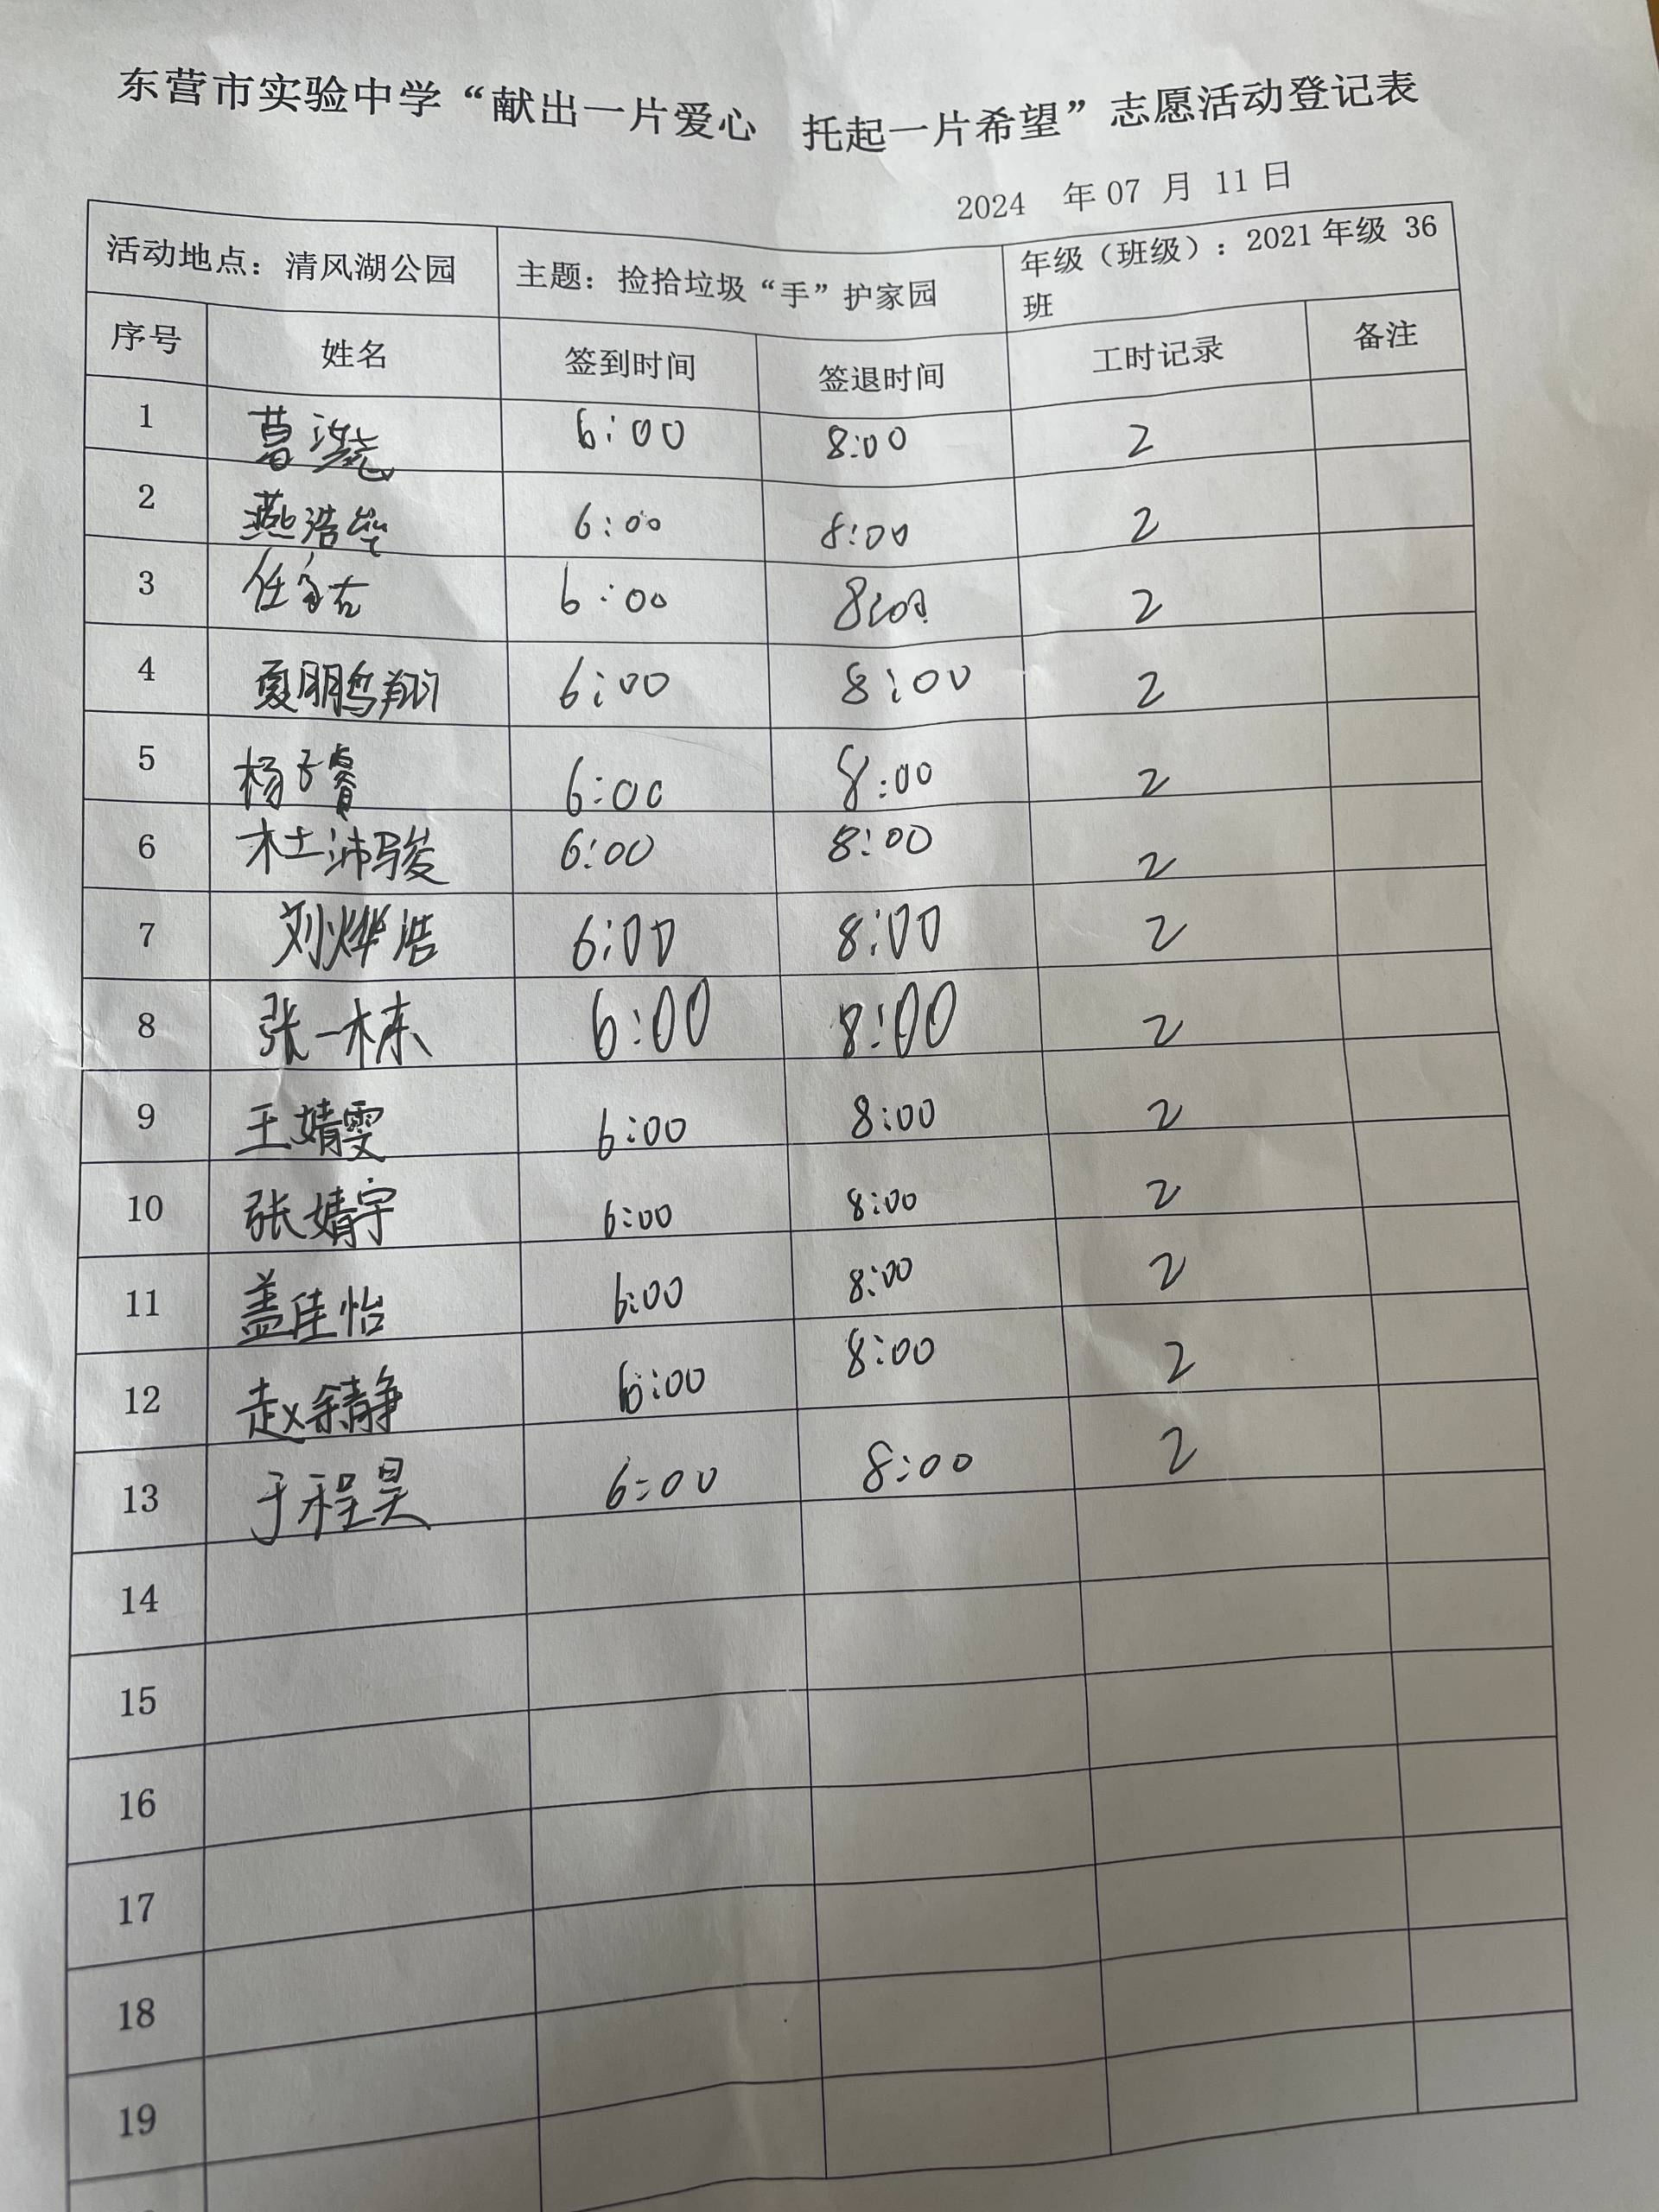 东营市实验中学“献出一片爱心 托起一片希望”志愿活动登记表
2024 年 07 月 11 日
活动地点：清风湖公园 主题：捡拾垃圾“手”护家园 年级（班级）：2021 年级 36
班
序号 姓名 签到时间 签退时间 工时记录 备注
1 6:00 8:00 2
2 燕浩 6:00 8:00 2
3 任 6:00 8:00 2
4 夏鹏翔 6:00 8:00 2
5 杨子睿 6:00 8:00 2
6 杜沛骏 6:00 8:00 2
7 刘烨浩 6:00 8:00 2
8 张一栋 6:00 8:00 2
9 王婧雯 6:00 8:00 2
10 张婧宇 6:00 8:00 2
11 盖佳怡 6:00 8:00 2
12 赵余静 6:00 8:00 2
13 于程昊 6:00 8:00 2
14
15
16
17
18
19